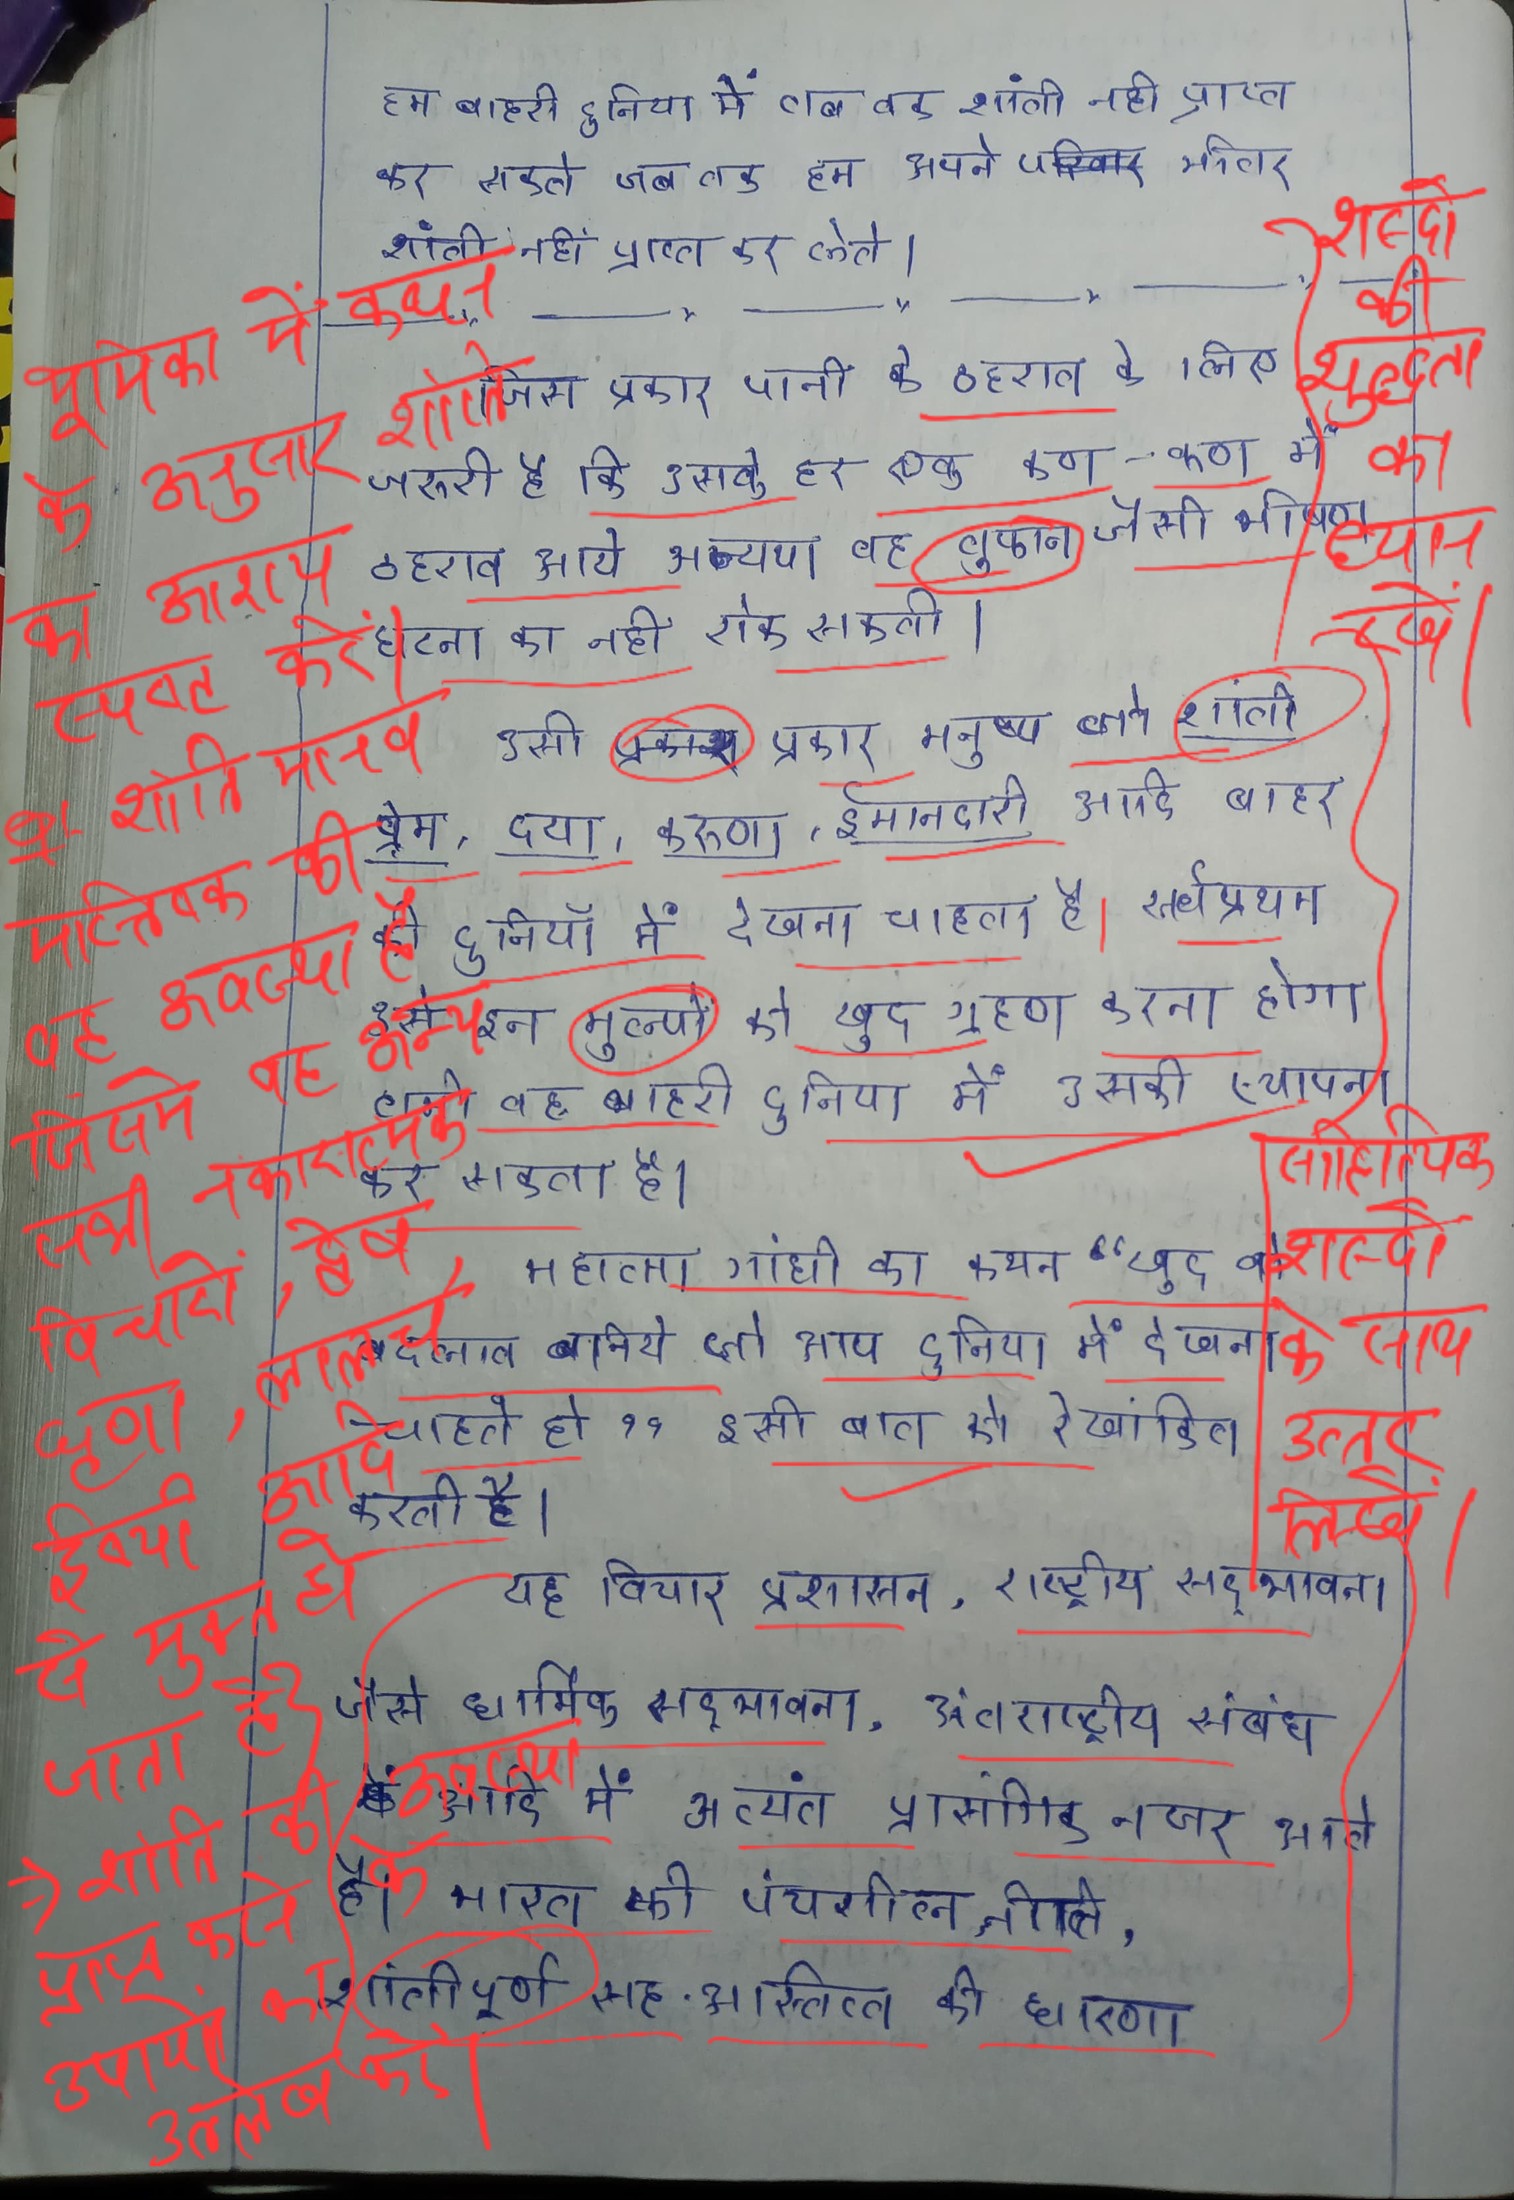 हम बाहरी दुनिया में तब तक शांती नही प्राप्त
कर सकते जब तक हम अपने परिवार भीतर
शांती नहीं प्राप्त कर लेते।
जिस प्रकार पानी के ठहराव के लिए
जरूरी है कि उसके हर एक कण-कण में
ठहराव आये अन्यथा वह तुफान जैसी भीषण
घटना का नही रोक सकती।
उसी प्रकार मनुष्य शांती
प्रेम, दया, करूणा, ईमानदारी आदि बाहर
की दुनियाँ में देखना चाहता है। सर्वप्रथम
उसे इन मुल्यों को खुद ग्रहण करना होगा
तभी वह बाहरी दुनिया में उसकी स्थापना
कर सकता है।
महात्मा गांधी का कथन “खुद वो
बदलाव बनिये जो आप दुनिया में देखना
चाहते हो" इसी बात को रेखांकित
करती है।
यह विचार प्रशासन, राष्ट्रीय सद्भावना
जैसे धार्मिक सद्भावना, अंतराष्ट्रीय संबंध
आदि में अत्यंत प्रासंगिक नजर आते
है। भारत की पंचशील नीति,
शांतीपूर्ण सह-अस्तित्व की धारणा
भूमिका में कथन
के अनुसार शांति
का आशय
स्पष्ट करें।
शांति मानव
मस्तिष्क की
वह अवस्था है
जिसमे वह अन्य
सभी नकारात्मक
विचारों, द्वेष,
घृणा, लालच,
ईर्ष्या आदि
से मुक्त हो
जाता है।
→ शांति की अवस्था
प्राप्त करने के
उपायों का
उल्लेख करें।
शब्दों
की
शुद्धता
का
ध्यान
रखें।
साहित्यिक
शब्दों
के साथ
उत्तर
लिखें।